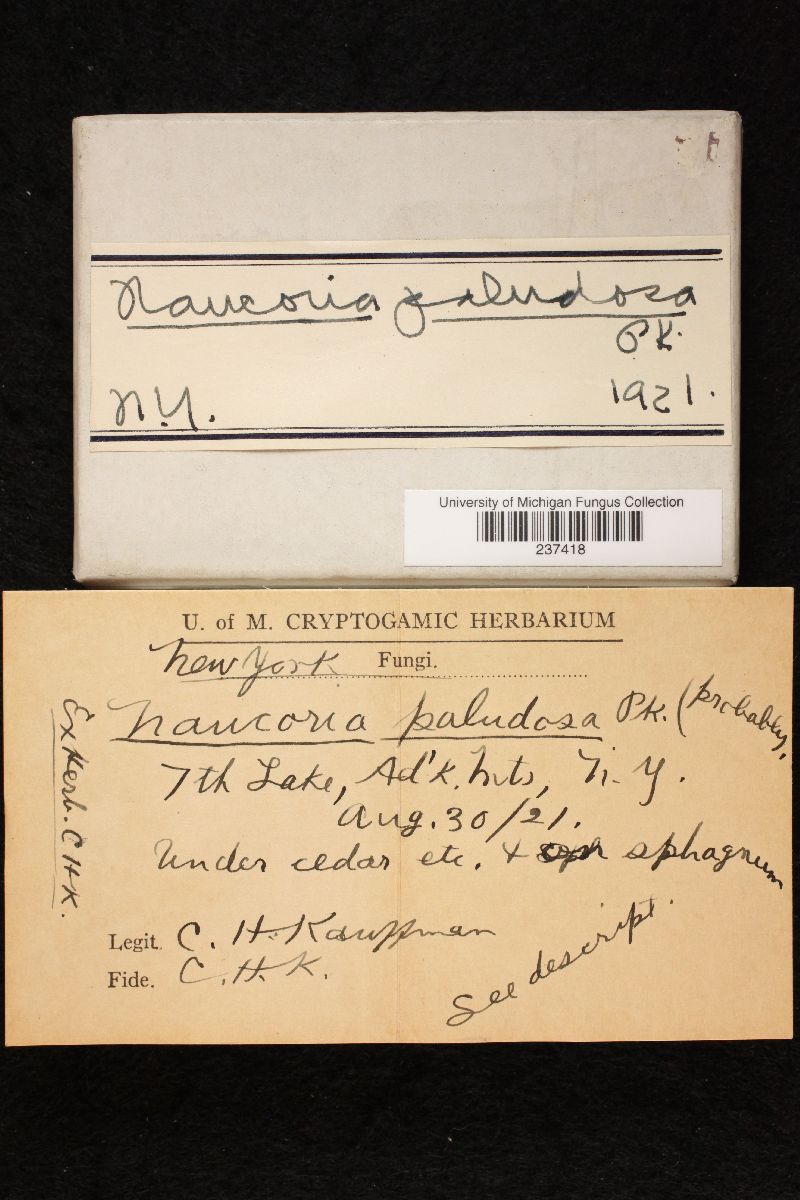 Naucoria paludosa
Pk.
N.Y. 1921.
University of Michigan Fungus Collection
237418
U. of M. CRYPTOGAMIC HERBARIUM
New York Fungi.
Naucoria paludosa Pk. (probably,
7th Lake, Ad'k. Mts, N.Y.
Aug. 30/21.
Under cedar etc. & sphagnum
Legit. C. H. Kauffman
Fide. C.H.K.
See descript.
Ex Herb. C H K.